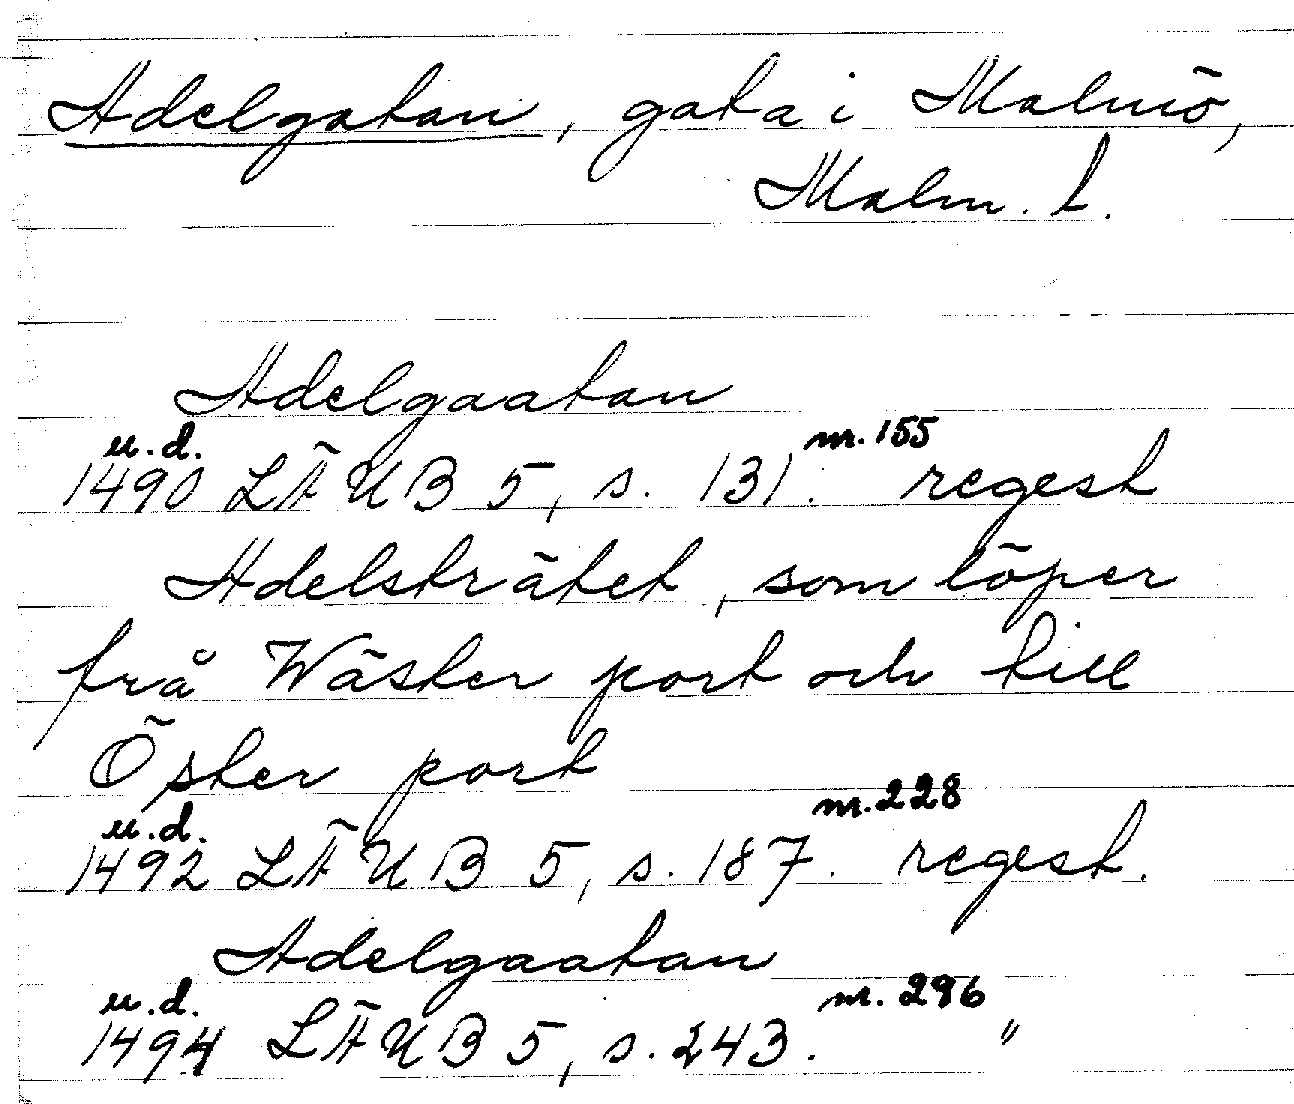 Adelgatan, gata i Malmö,
Malm. l.
Adelgaatan
u.d. nr. 155
1490 LÄUB 5, s. 131. regest
Adelsträtet, som löper
frå Wäster port och till
Öster port
u.d. nr. 228
1492 LÄUB 5, s. 187. regest.
Adelgaatan
u.d. nr. 296
1494 LÄUB 5, s. 243. "